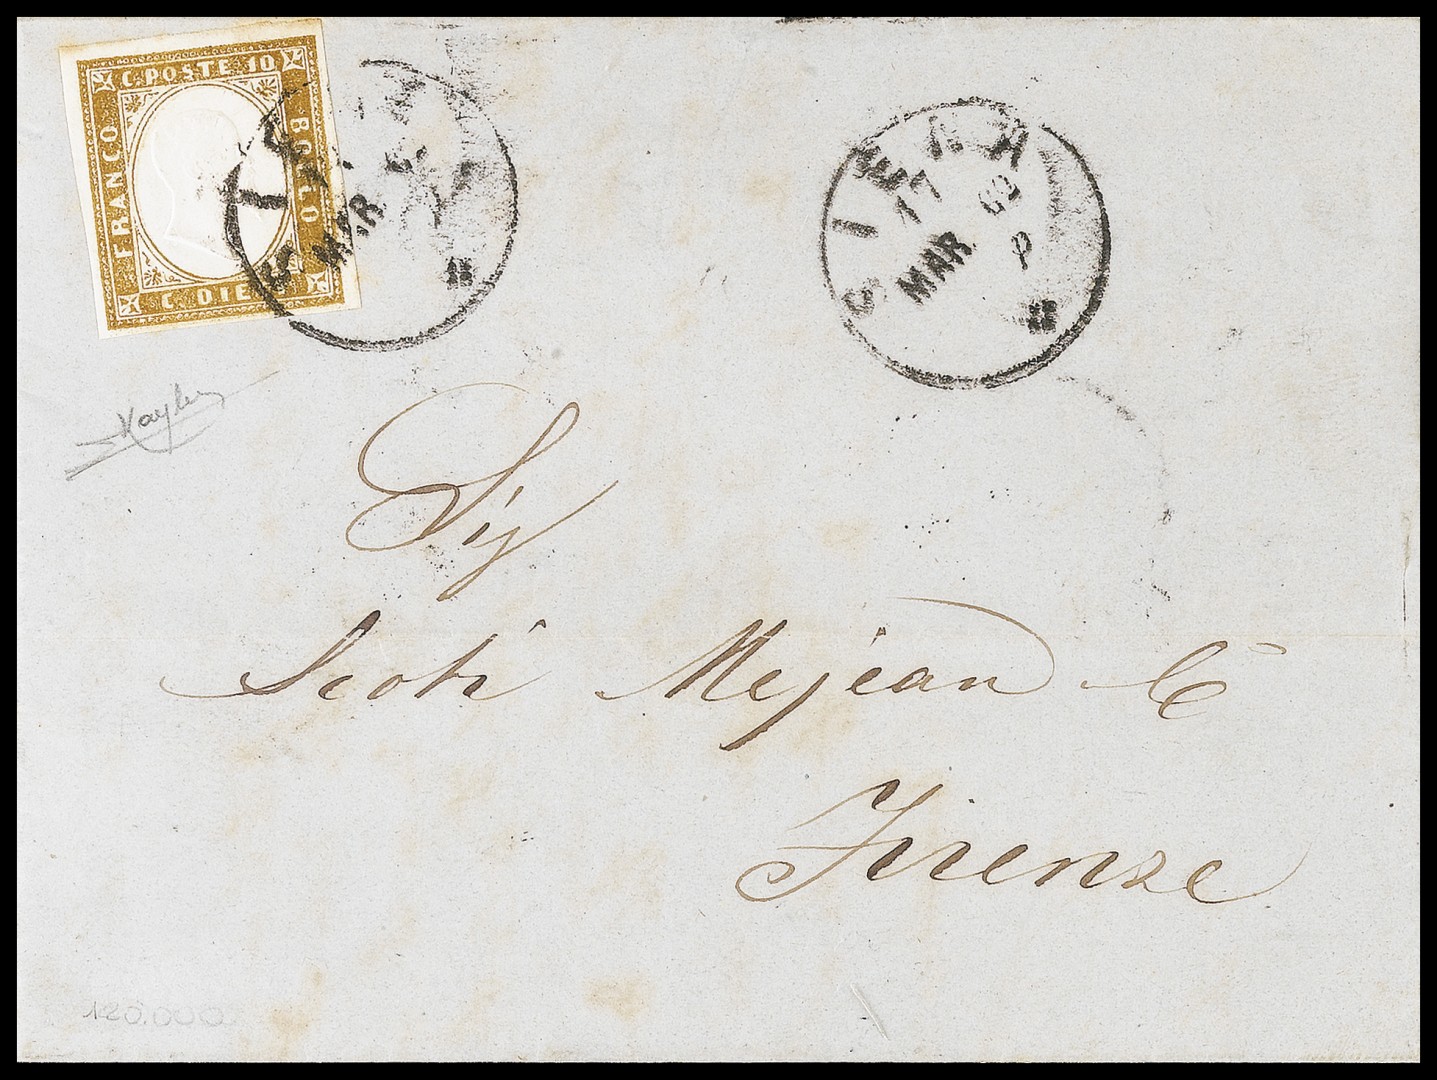 C. POSTE 10
FRANCO
BOLLO
C. DIE
SIENA
MAR
SIENA
17
MAR
62
Sig
Scoti Mejean & Cº
Firenze
120.000